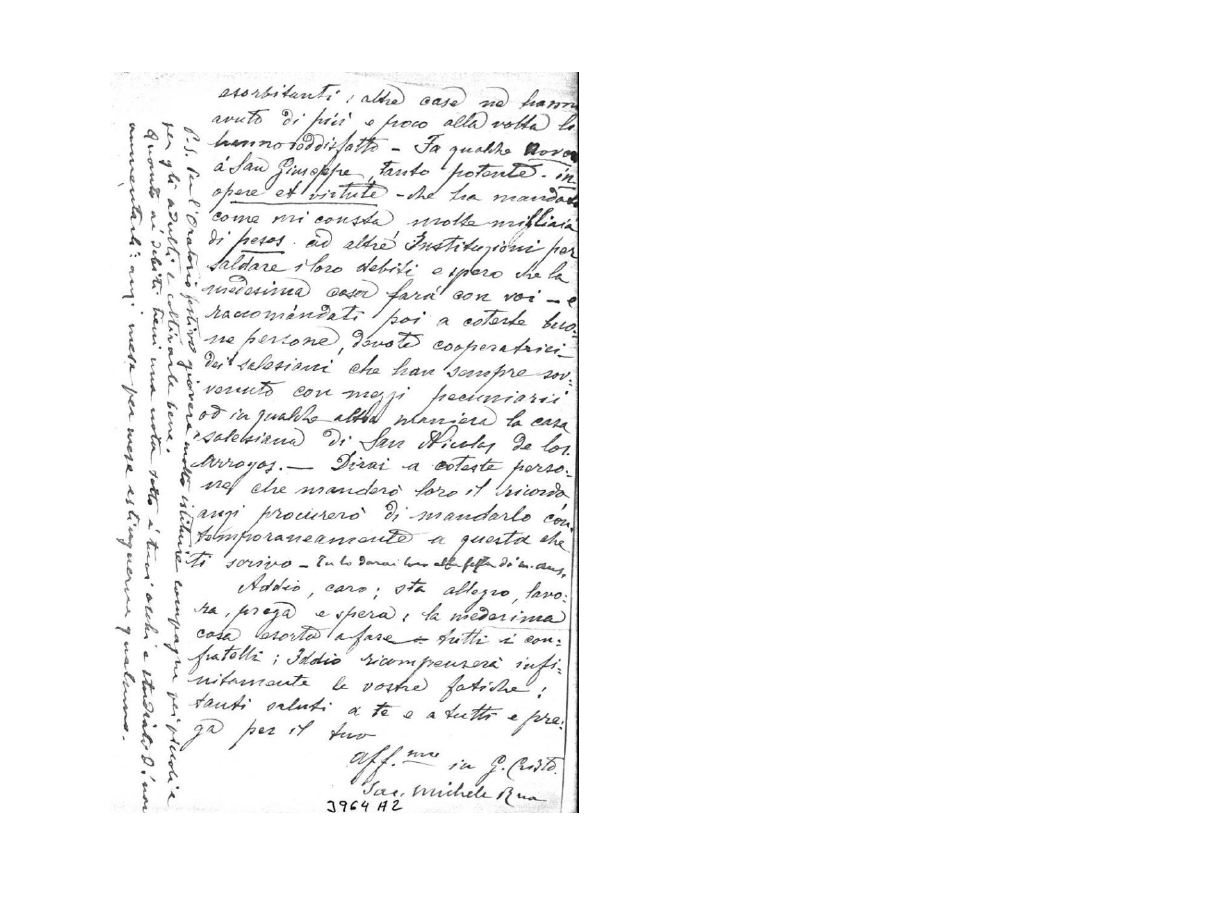 esorbitanti; altre case ne hanno
avuto di più e poco alla volta li
hanno soddisfatto – Fa qualche novena
á San Giuseppe, tanto potente – in
opere et virtute – che ha mandato
come mi consta molte migliaia
di pesos ad altre Instituzioni per
saldare i loro debiti e spero che la
medesima cosa fará con voi – e
raccomándati poi a coteste buo-
ne persone, devote cooperatrici
dei salesiani che han sempre sov-
venuto con mezzi pecuniarii
od in qualche altra maniera la casa
salesiana di San Nicolas de los
Arroyos. — Dirai a coteste perso-
ne che manderò loro il ricordo
anzi procurerò di mandarlo con
temporaneamente a questa che
ti scrivo – Tu lo darai loro alla festa di
Addio, caro; sta allegro, lavo-
ra, prega e spera; la medesima
cosa esorta a fare a tutti i con-
fratelli; Iddio ricompenserà infi-
nitamente le vostre fatiche;
tanti saluti a te e a tutti e pre-
ga per il tuo
aff.mo in G. Cristo
Sac. Michele Rua
3964 A2
P.S. Per l'Oratorio festivo gioverà molto istituire compagnie pei piccoli e
per gli adulti e coltivarle bene.
Quanto ai debiti tieni una nota sotto i tuoi occhi e studiati di non
aumentarli: anzi mese per mese estinguerne qualcuno.